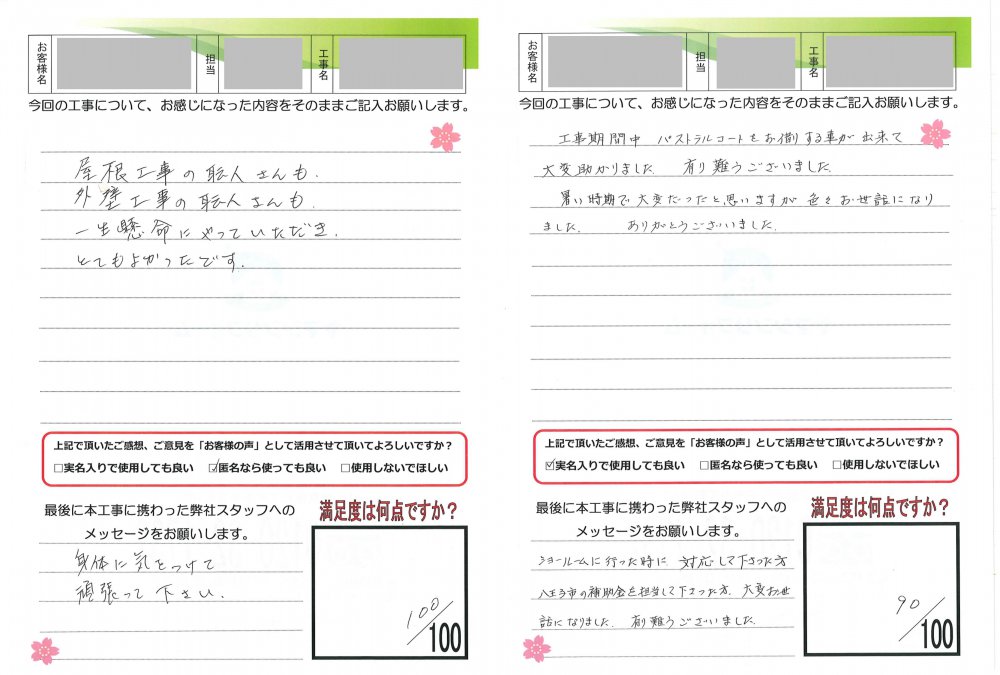 お客様名
担当
工事名
今回の工事について、お感じになった内容をそのままご記入お願いします。
屋根工事の職人さんも.
外壁工事の職人さんも.
一生懸命にやっていただき.
とてもよかったです.
上記で頂いたご感想、ご意見を「お客様の声」として活用させて頂いてよろしいですか？
□実名入りで使用しても良い ☑匿名なら使っても良い □使用しないでほしい
最後に本工事に携わった弊社スタッフへの
メッセージをお願いします。
身体に気をつけて
頑張って下さい.
満足度は何点ですか？
100/100
お客様名
担当
工事名
今回の工事について、お感じになった内容をそのままご記入お願いします。
工事期間中 パストラルコートをお借する事が出来て
大変助かりました. 有り難うございました.
暑い時期で大変だったと思いますが色々お世話になり
ました. ありがとうございました.
上記で頂いたご感想、ご意見を「お客様の声」として活用させて頂いてよろしいですか？
☑実名入りで使用しても良い □匿名なら使っても良い □使用しないでほしい
最後に本工事に携わった弊社スタッフへの
メッセージをお願いします。
ショールームに行った時に 対応して下さった方
八王子市の補助金を担当して下さった方. 大変お世
話になりました. 有り難うございました.
満足度は何点ですか？
90/100